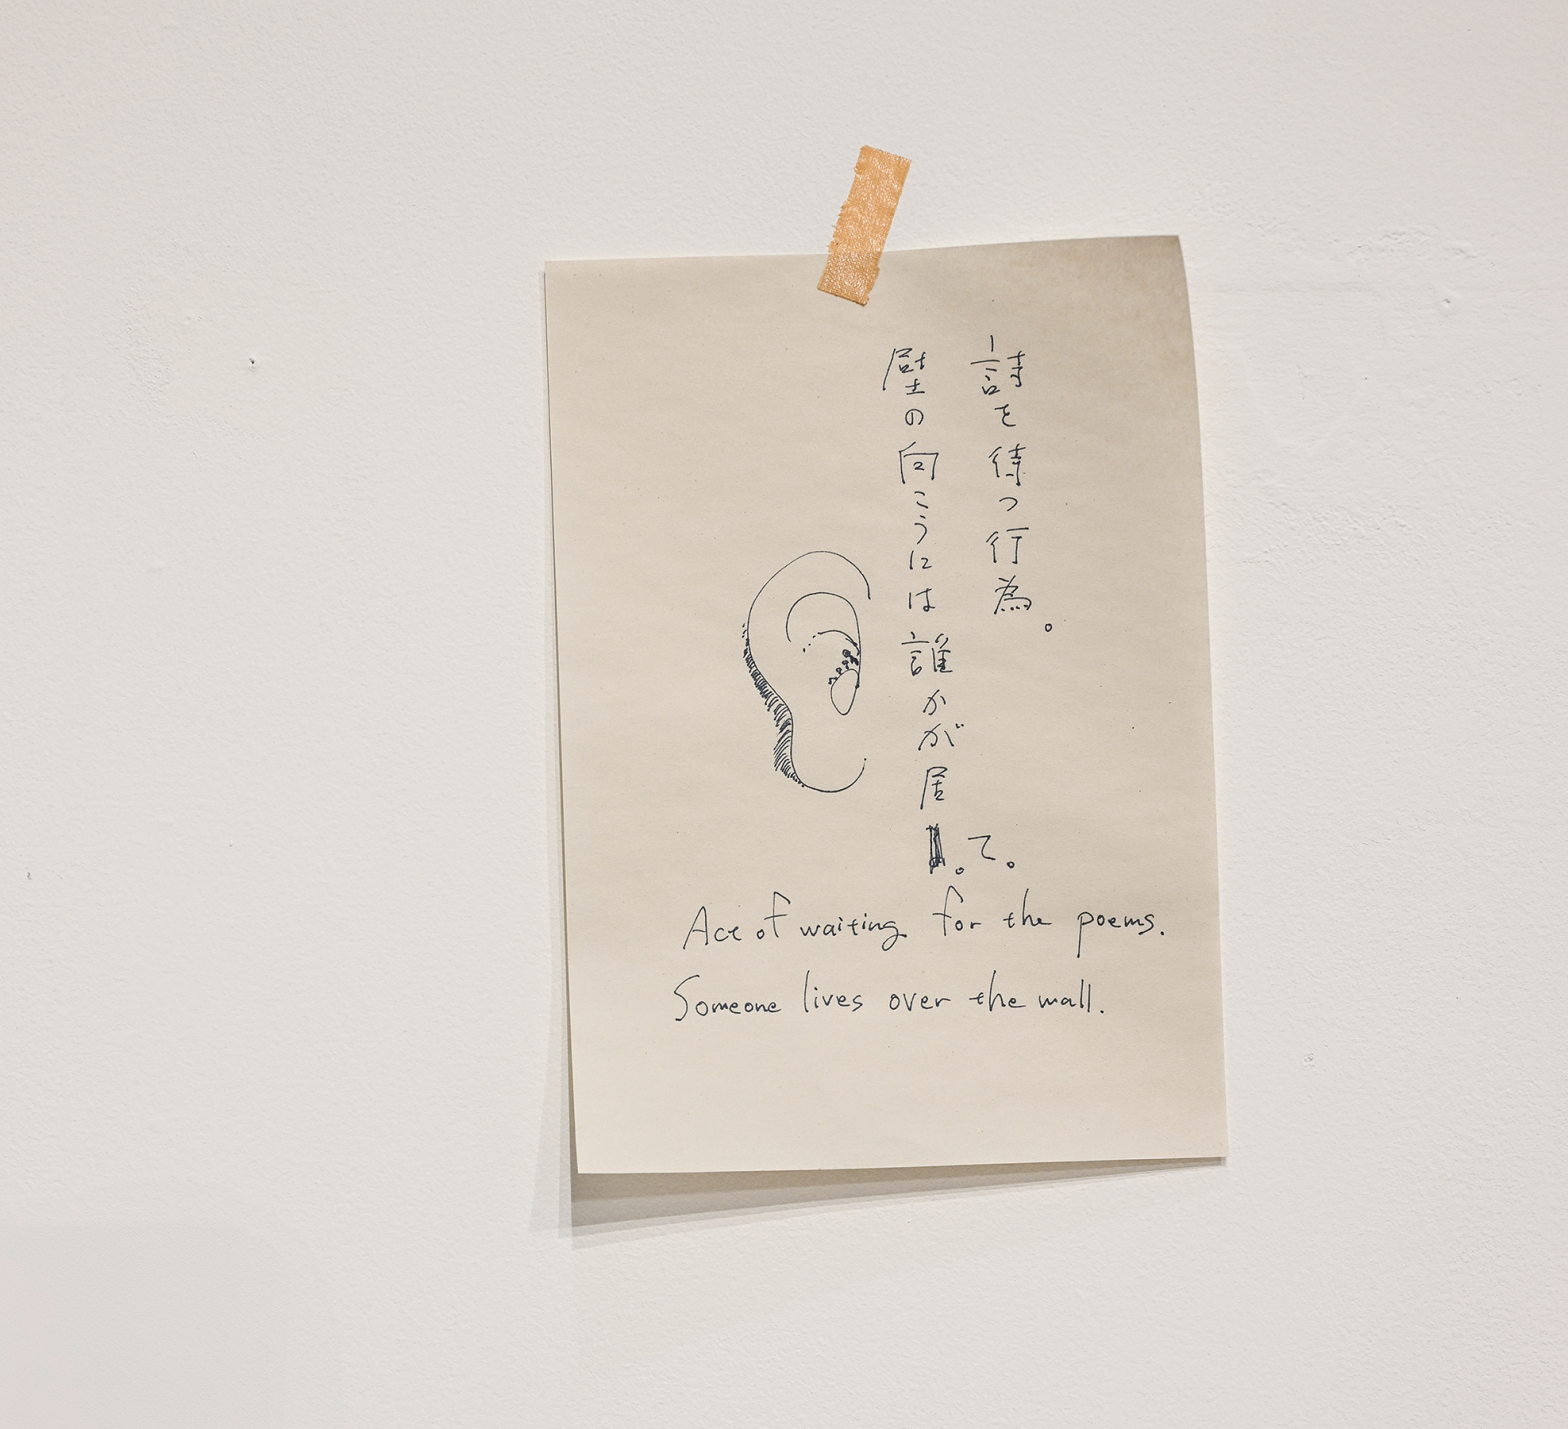 詩を待つ行為。
壁の向こうには誰かが居て。
Act of waiting for the poems.
Someone lives over the wall.